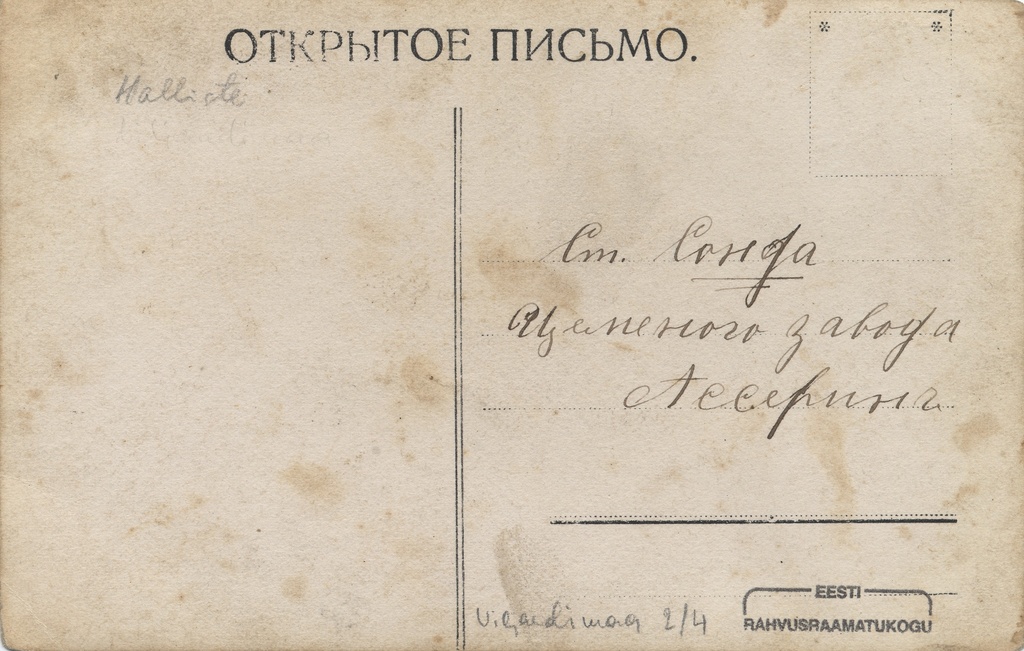 ОТКРЫТОЕ ПИСЬМО.
Halliste
Ст. Сонда
Цеменого завода
Ассеринг
Viljandimaa 2/4
EESTI
RAHVUSRAAMATUKOGU